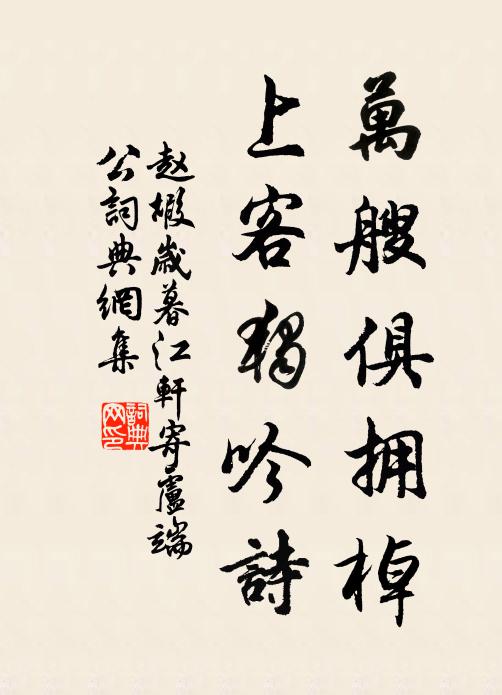 萬艘俱擁棹
上客獨吟詩
赵嘏歲暮江軒寄盧端
公詞典網集
詞典
网印